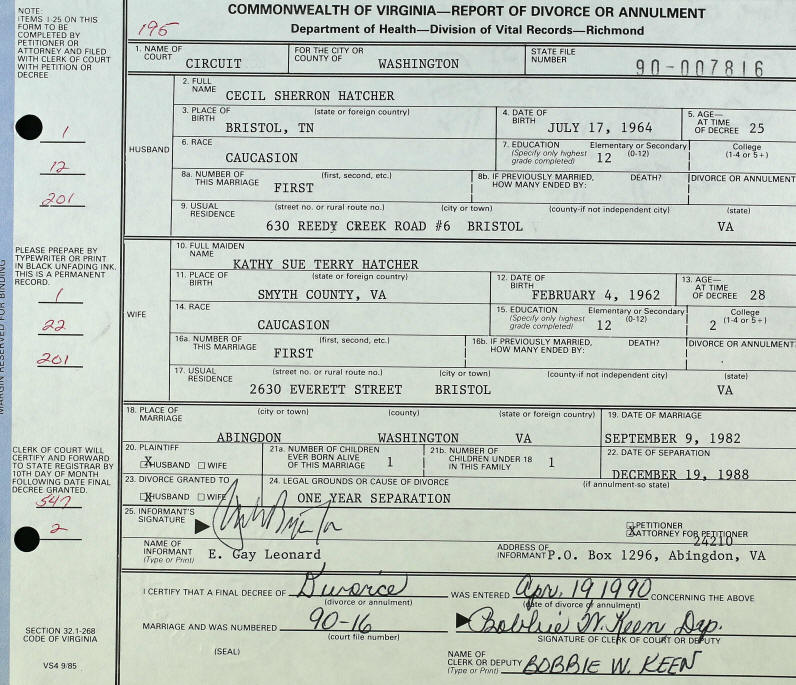 COMMONWEALTH OF VIRGINIA—REPORT OF DIVORCE OR ANNULMENT
Department of Health—Division of Vital Records—Richmond
195
NOTE:
ITEMS 1-25 ON THIS
FORM TO BE
COMPLETED BY
PETITIONER OR
ATTORNEY AND FILED
WITH CLERK OF COURT
WITH PETITION OR
DECREE
1
12
201
PLEASE PREPARE BY
TYPEWRITER OR PRINT
IN BLACK UNFADING INK.
THIS IS A PERMANENT
RECORD.
1
22
201
CLERK OF COURT WILL
CERTIFY AND FORWARD
TO STATE REGISTRAR BY
10TH DAY OF MONTH
FOLLOWING DATE FINAL
DECREE GRANTED.
547
2
SECTION 32.1-268
CODE OF VIRGINIA
VS4 9/85
MARGIN RESERVED FOR BINDING
1. NAME OF COURT CIRCUIT FOR THE CITY OR COUNTY OF WASHINGTON STATE FILE NUMBER 90-007816
HUSBAND
2. FULL NAME CECIL SHERRON HATCHER
3. PLACE OF BIRTH (state or foreign country) BRISTOL, TN 4. DATE OF BIRTH JULY 17, 1964 5. AGE— AT TIME OF DECREE 25
6. RACE CAUCASION 7. EDUCATION (Specify only highest grade completed) Elementary or Secondary (0-12) 12 College (1-4 or 5+)
8a. NUMBER OF THIS MARRIAGE (first, second, etc.) FIRST 8b. IF PREVIOUSLY MARRIED, HOW MANY ENDED BY: DEATH? DIVORCE OR ANNULMENT
9. USUAL RESIDENCE (street no. or rural route no.) (city or town) (county-if not independent city) (state)
630 REEDY CREEK ROAD #6 BRISTOL VA
WIFE
10. FULL MAIDEN NAME KATHY SUE TERRY HATCHER
11. PLACE OF BIRTH (state or foreign country) SMYTH COUNTY, VA 12. DATE OF BIRTH FEBRUARY 4, 1962 13. AGE— AT TIME OF DECREE 28
14. RACE CAUCASION 15. EDUCATION (Specify only highest grade completed) Elementary or Secondary (0-12) 12 College (1-4 or 5+) 2
16a. NUMBER OF THIS MARRIAGE (first, second, etc.) FIRST 16b. IF PREVIOUSLY MARRIED, HOW MANY ENDED BY: DEATH? DIVORCE OR ANNULMENT
17. USUAL RESIDENCE (street no. or rural route no.) (city or town) (county-if not independent city) (state)
2630 EVERETT STREET BRISTOL VA
18. PLACE OF MARRIAGE (city or town) (county) (state or foreign country) 19. DATE OF MARRIAGE
ABINGDON WASHINGTON VA SEPTEMBER 9, 1982
20. PLAINTIFF X HUSBAND WIFE 21a. NUMBER OF CHILDREN EVER BORN ALIVE OF THIS MARRIAGE 1 21b. NUMBER OF CHILDREN UNDER 18 IN THIS FAMILY 1 22. DATE OF SEPARATION DECEMBER 19, 1988
23. DIVORCE GRANTED TO X HUSBAND WIFE 24. LEGAL GROUNDS OR CAUSE OF DIVORCE (if annulment-so state)
ONE YEAR SEPARATION
25. INFORMANT'S SIGNATURE PETITIONER
X ATTORNEY FOR PETITIONER
24210
NAME OF INFORMANT (Type or Print) E. Gay Leonard ADDRESS OF INFORMANT P.O. Box 1296, Abingdon, VA
I CERTIFY THAT A FINAL DECREE OF Divorce WAS ENTERED Apr. 19 1990 CONCERNING THE ABOVE
(divorce or annulment) (date of divorce or annulment)
MARRIAGE AND WAS NUMBERED 90-16 Bobbie W. Keen Dep.
(court file number) SIGNATURE OF CLERK OF COURT OR DEPUTY
(SEAL)
NAME OF CLERK OR DEPUTY (Type or Print) BOBBIE W. KEEN